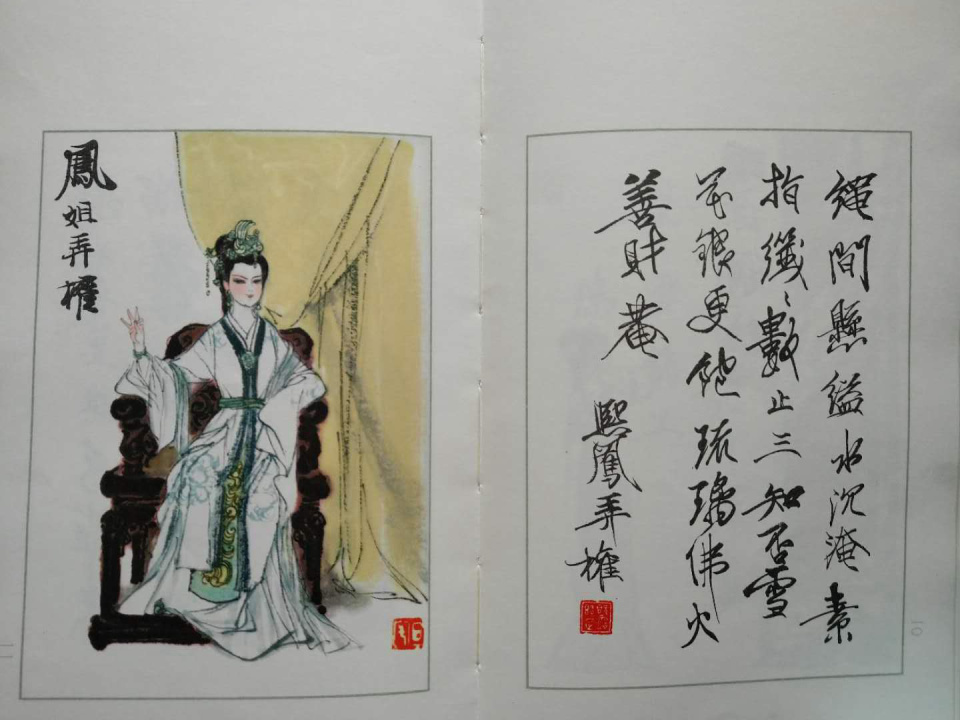 繩間懸縊水沉淹素
指纖〻數止三知否雪
花銀更琉璃佛火
善財菴
熙鳳弄權
10
鳳姐弄權
11